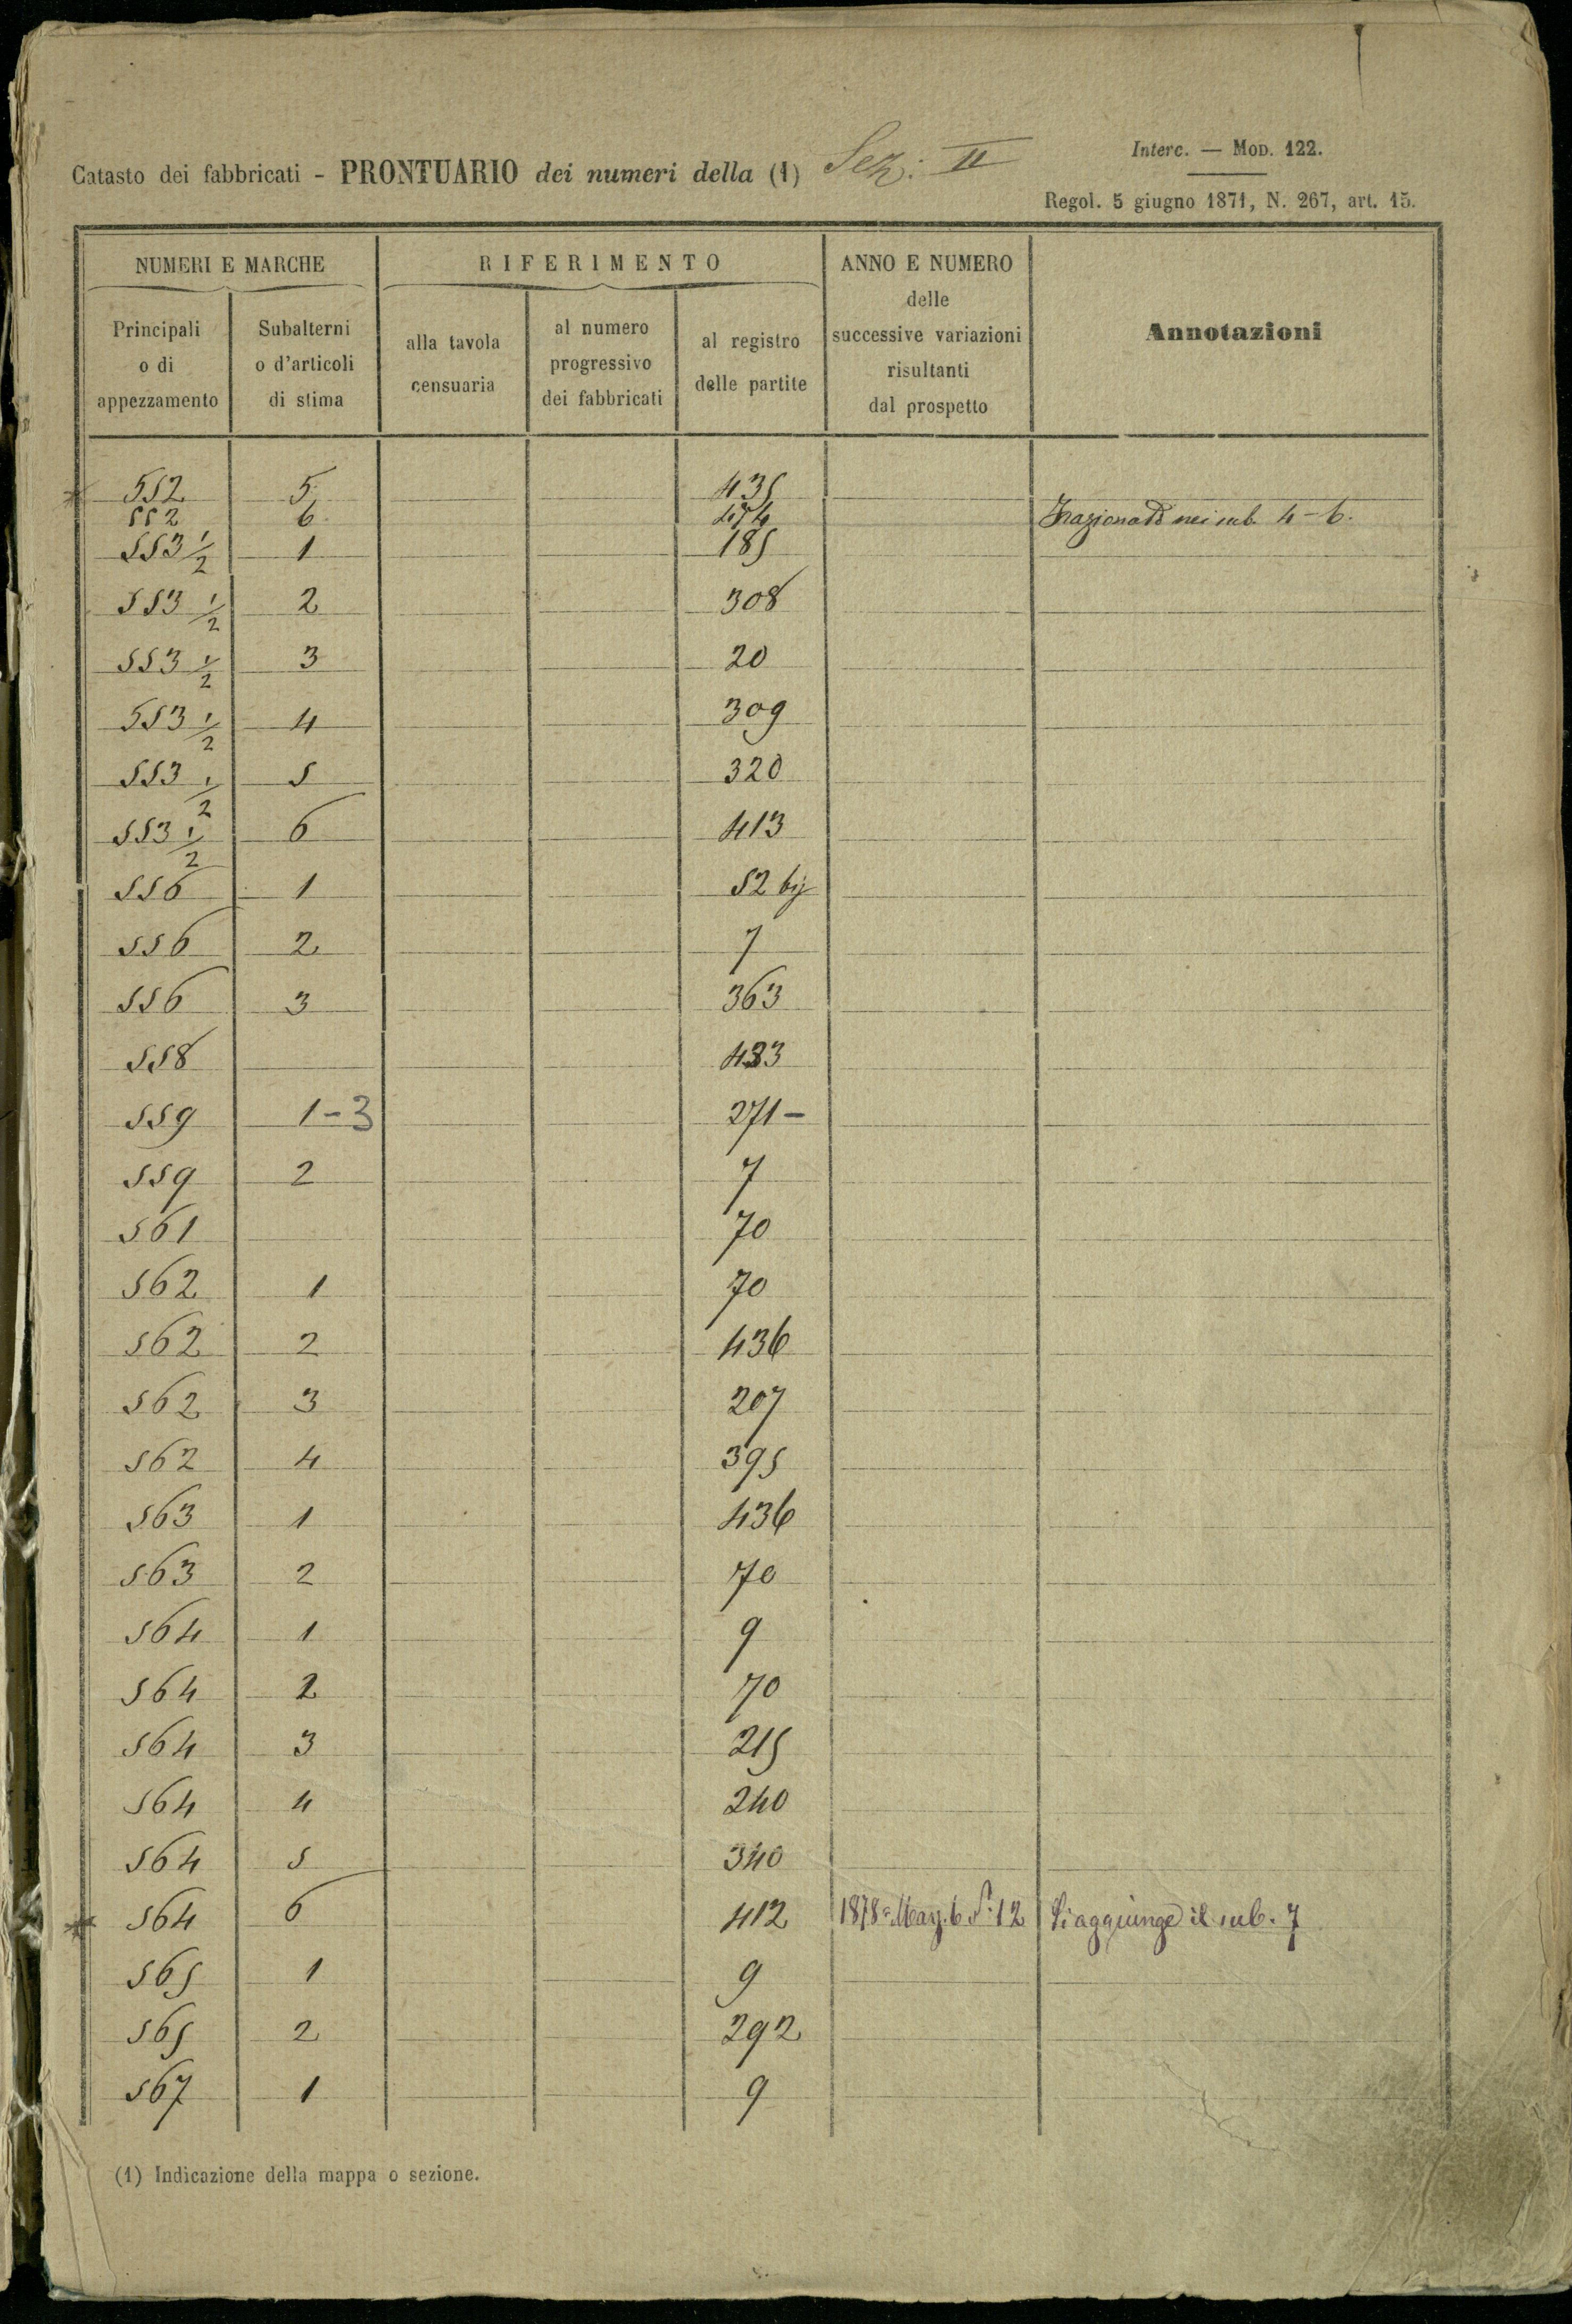 Interc. — Mod. 122.
Catasto dei fabbricati - PRONTUARIO dei numeri della (1) Sez: II
Regol. 5 giugno 1871, N. 267, art. 15.
NUMERI E MARCHE
Principali o di appezzamento
Subalterni o d'articoli di stima
RIFERIMENTO
alla tavola censuaria
al numero progressivo dei fabbricati
al registro delle partite
ANNO E NUMERO delle successive variazioni risultanti dal prospetto
Annotazioni
552 5 435
552 6 474 nei sub. 4-6.
553 1/2 1 185
553 1/2 2 308
553 1/2 3 20
553 1/2 4 309
553 1/2 5 320
553 1/2 6 413
556 1 52 bis
556 2 7
556 3 363
558 433
559 1-3 271-
559 2 7
561 70
562 1 70
562 2 436
562 3 207
562 4 395
563 1 436
563 2 70
564 1 9
564 2 70
564 3 215
564 4 240
564 5 340
564 6 412 1878 12 Si aggiunge il sub. 7
565 1 9
565 2 292
567 1 9
(1) Indicazione della mappa o sezione.